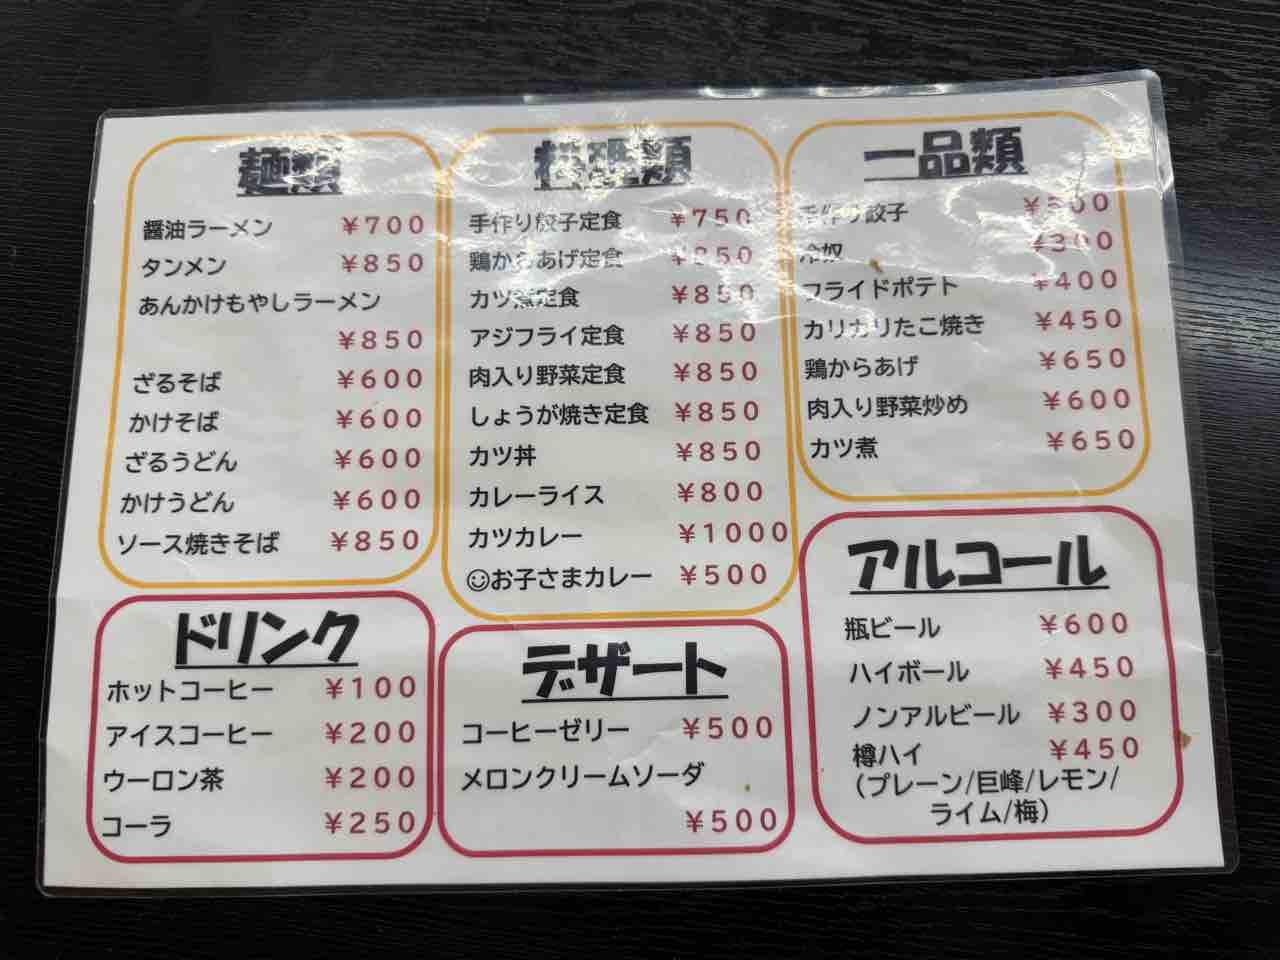 麺類
醤油ラーメン ¥700
タンメン ¥850
あんかけもやしラーメン
¥850
ざるそば ¥600
かけそば ¥600
ざるうどん ¥600
かけうどん ¥600
ソース焼きそば ¥850
料理類
手作り餃子定食 ¥750
鶏からあげ定食 ¥850
カツ煮定食 ¥850
アジフライ定食 ¥850
肉入り野菜定食 ¥850
しょうが焼き定食 ¥850
カツ丼 ¥850
カレーライス ¥800
カツカレー ¥1000
☺お子さまカレー ¥500
一品類
手作り餃子 ¥500
冷奴 ¥300
フライドポテト ¥400
カリカリたこ焼き ¥450
鶏からあげ ¥650
肉入り野菜炒め ¥600
カツ煮 ¥650
ドリンク
ホットコーヒー ¥100
アイスコーヒー ¥200
ウーロン茶 ¥200
コーラ ¥250
デザート
コーヒーゼリー ¥500
メロンクリームソーダ
¥500
アルコール
瓶ビール ¥600
ハイボール ¥450
ノンアルビール ¥300
樽ハイ ¥450
(プレーン/巨峰/レモン/
ライム/梅)